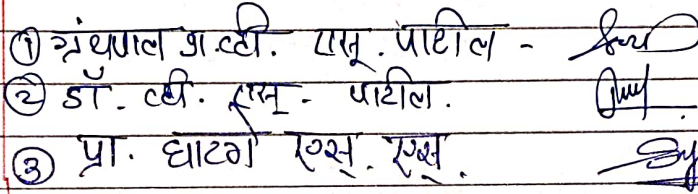 ① ग्रंथपाल श्री. व्ही. एस्. पाटील -
② डॉ. व्ही. एस्. पाटील.
③ प्रा. घाटगे एस्. एस्.